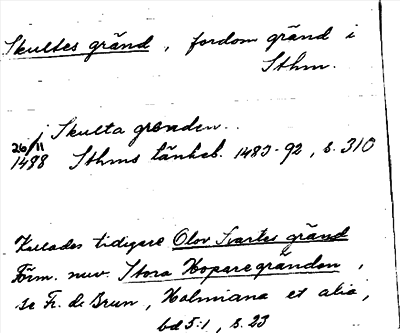 Skultes gränd, fordom gränd i
Sthm.
i Skulta grenden..
26/11
1488 Sthms tänkeb. 1483-92, s. 310
Kallades tidigare Olov Svartes gränd
Förm. nuv. Stora Hoparegränden,
se Fr. de Brun, Holmiana et alia,
bd 5:1, s. 23